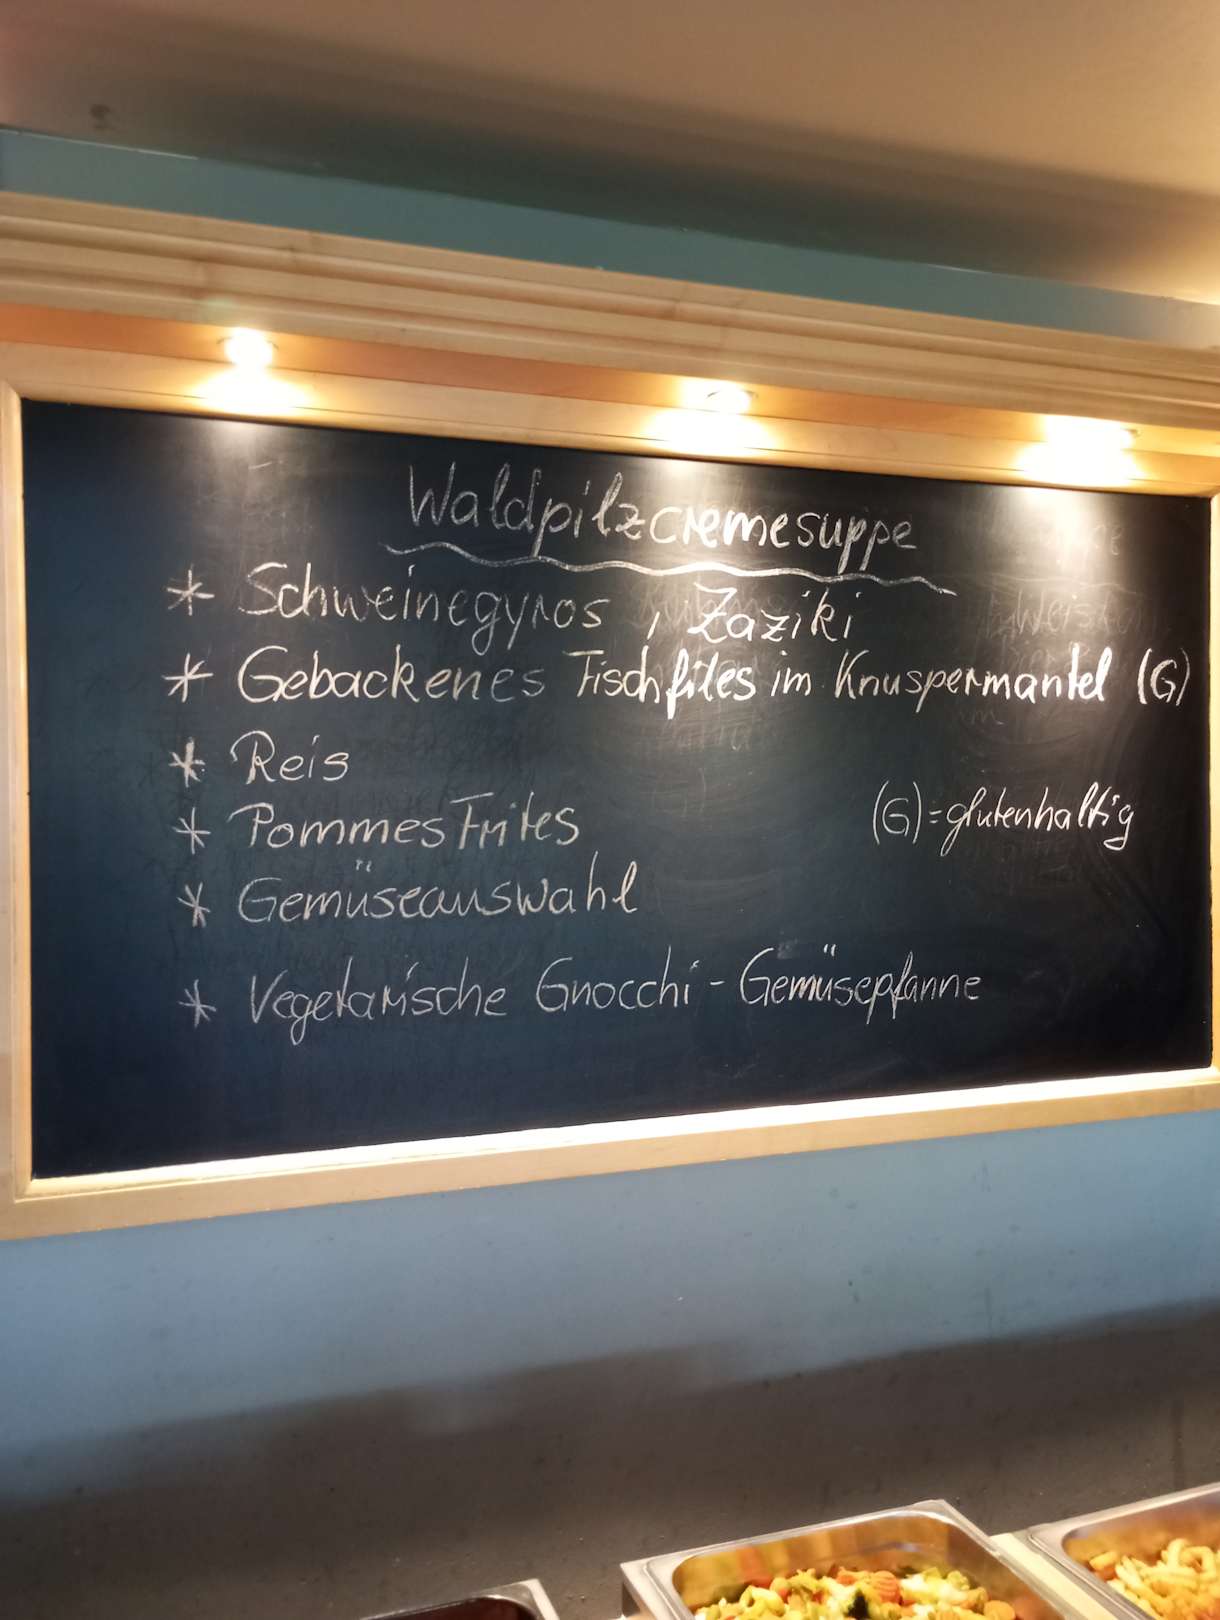 Waldpilzcremesuppe
* Schweinegyros , Zaziki
* Gebackenes Fischfiles im Knuspermantel (G)
* Reis
* Pommes Frites
(G) = glutenhaltig
* Gemüseauswahl
* Vegetarische Gnocchi - Gemüsepfanne